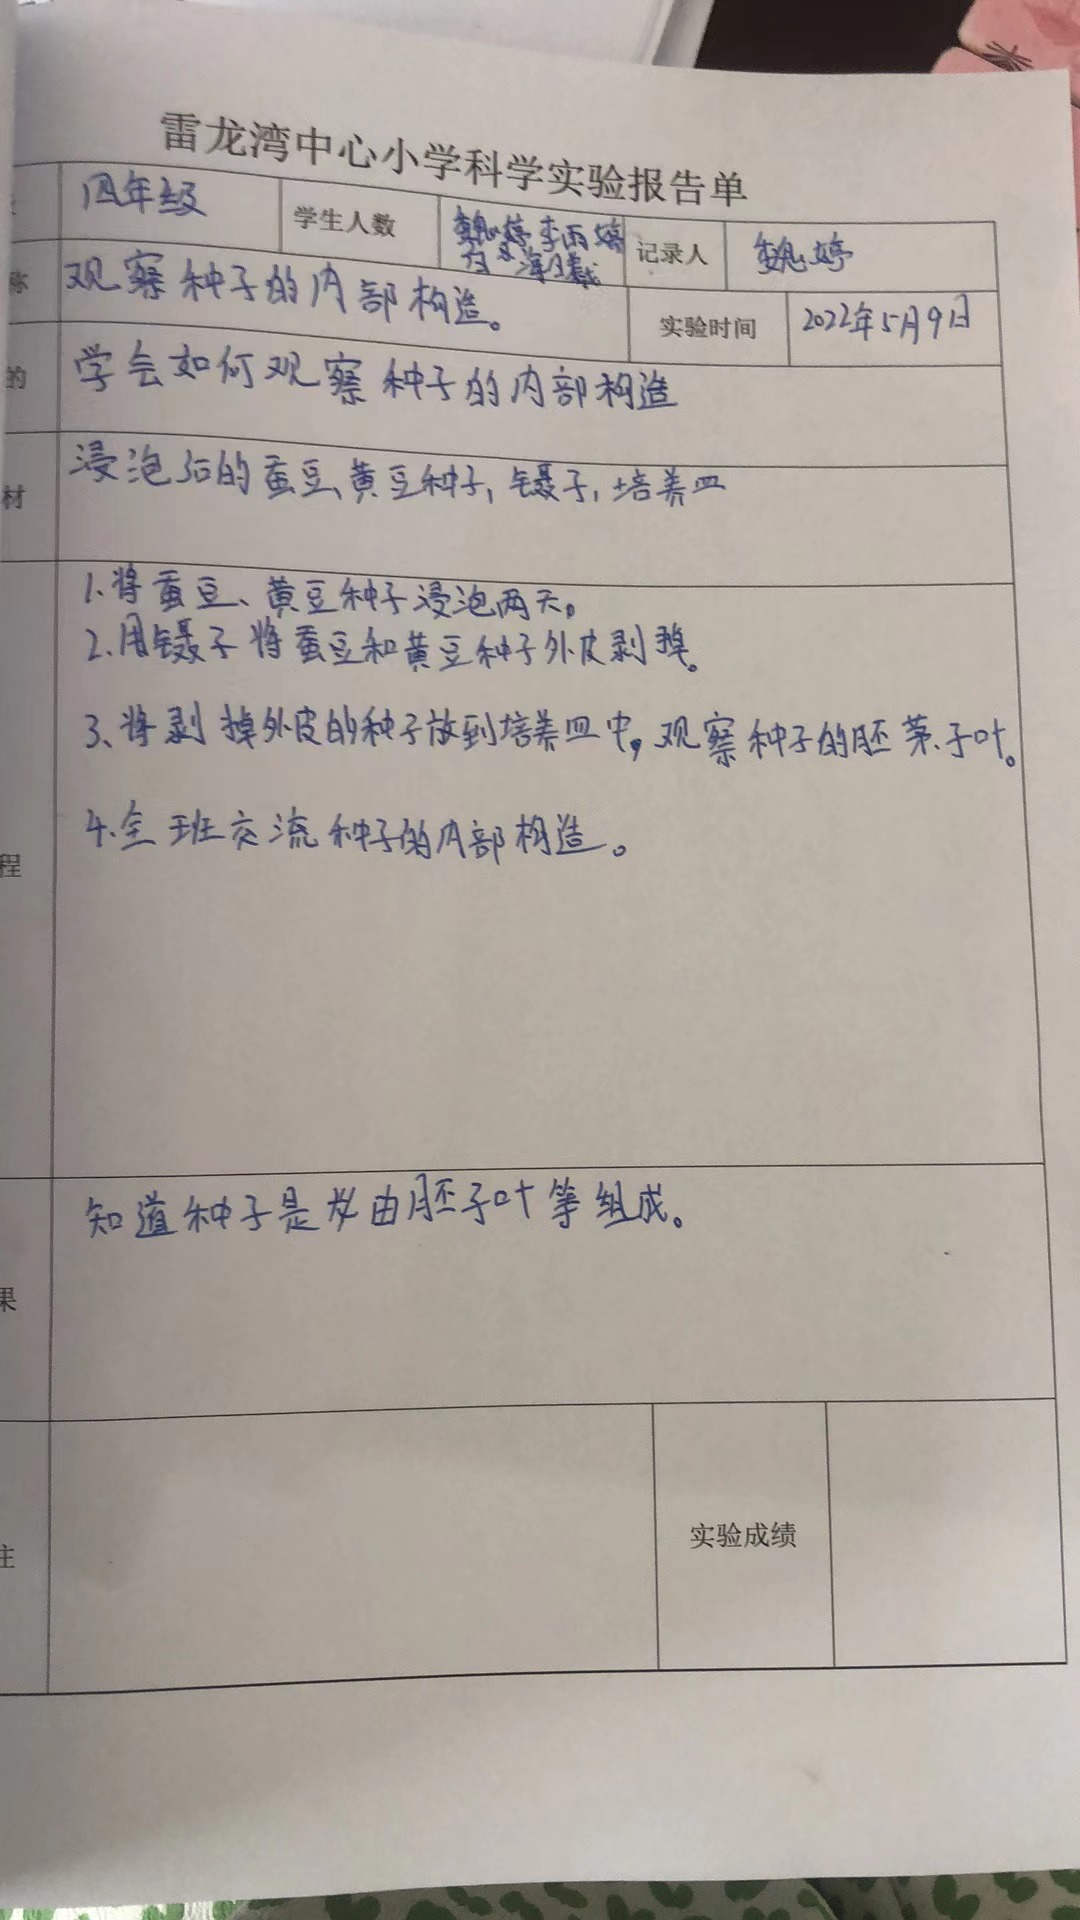 雷龙湾中心小学科学实验报告单
四年级 学生人数 魏婷 李雨婷 记录人 魏婷
称 观察种子的内部构造。 实验时间 2022年5月9日
的 学会如何观察种子的内部构造
材 浸泡后的蚕豆、黄豆种子,镊子,培养皿
1、将蚕豆、黄豆种子浸泡两天。
2、用镊子将蚕豆和黄豆种子外皮剥掉。
3、将剥掉外皮的种子放到培养皿中,观察种子的胚芽、子叶。
4、全班交流种子的内部构造。
程
知道种子是由胚子叶等组成。
果
注 实验成绩